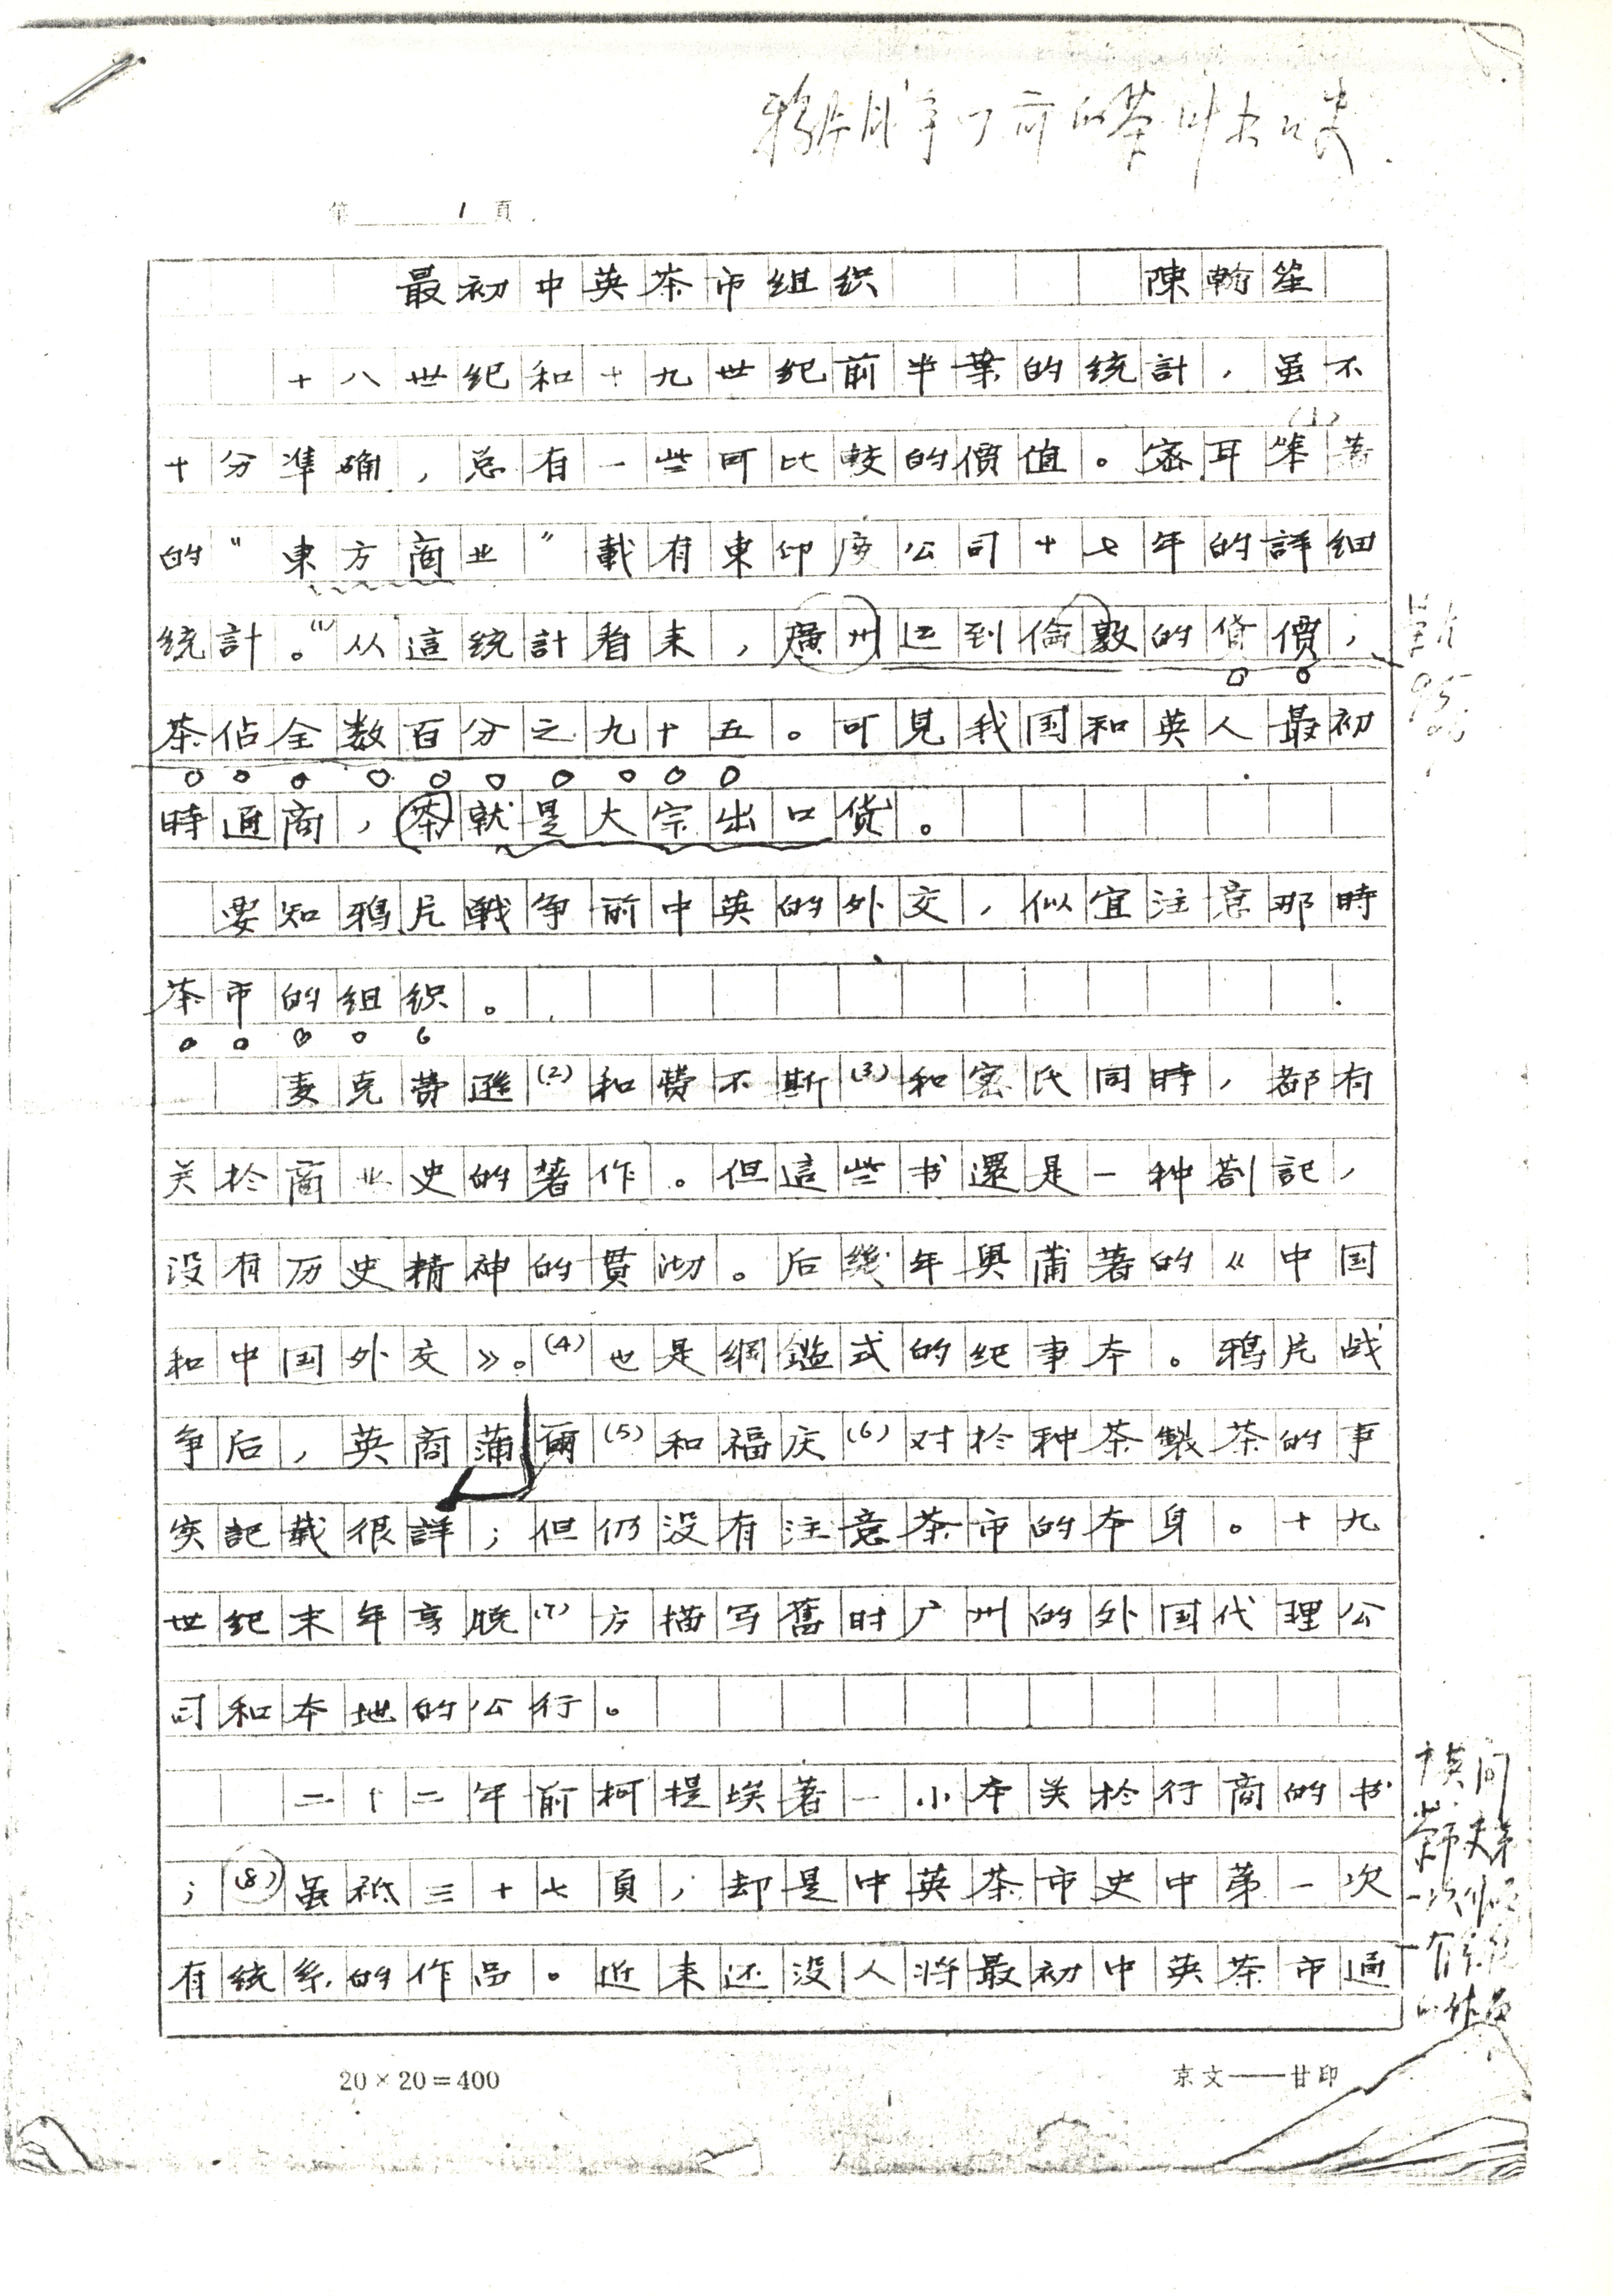 鸦片战争以前的茶叶
第 1 頁
最初中英茶市组织 陳翰笙
十八世纪和十九世纪前半葉的统計，虽不
十分準确，总有一些可比較的價值。密耳笨(1)著
的“東方商业”載有東印度公司十七年的詳细
统計。(1)从這统計看来，廣州运到倫敦的貨價，
茶佔全数百分之九十五。可見我国和英人最初
時通商，茶就是大宗出口貨。
要知鸦片戰争前中英的外交，似宜注意那時
茶市的组织。
麦克费遜(2)和费不斯(3)和密氏同時，都有
关於商业史的著作。但這些书還是一种劄記，
没有历史精神的貫沏。后幾年奥蒲著的《中国
和中国外交》。(4)也是綱鑑式的纪事本。鸦片战
争后，英商蒲爾(5)和福庆(6)对於种茶製茶的事
实記载很詳；但仍没有注意茶市的本身。十九
世纪末年亨脱(7)方描写舊时广州的外国代理公
司和本地的公行。
二十二年前柯提埃著一小本关於行商的书
；(8)虽祗三十七頁，却是中英茶市史中第一次
有统系的作品。近来还没人将最初中英茶市通
茶
95%
茶市史第
一次
一个
的作品
20×20=400
京文——甘印